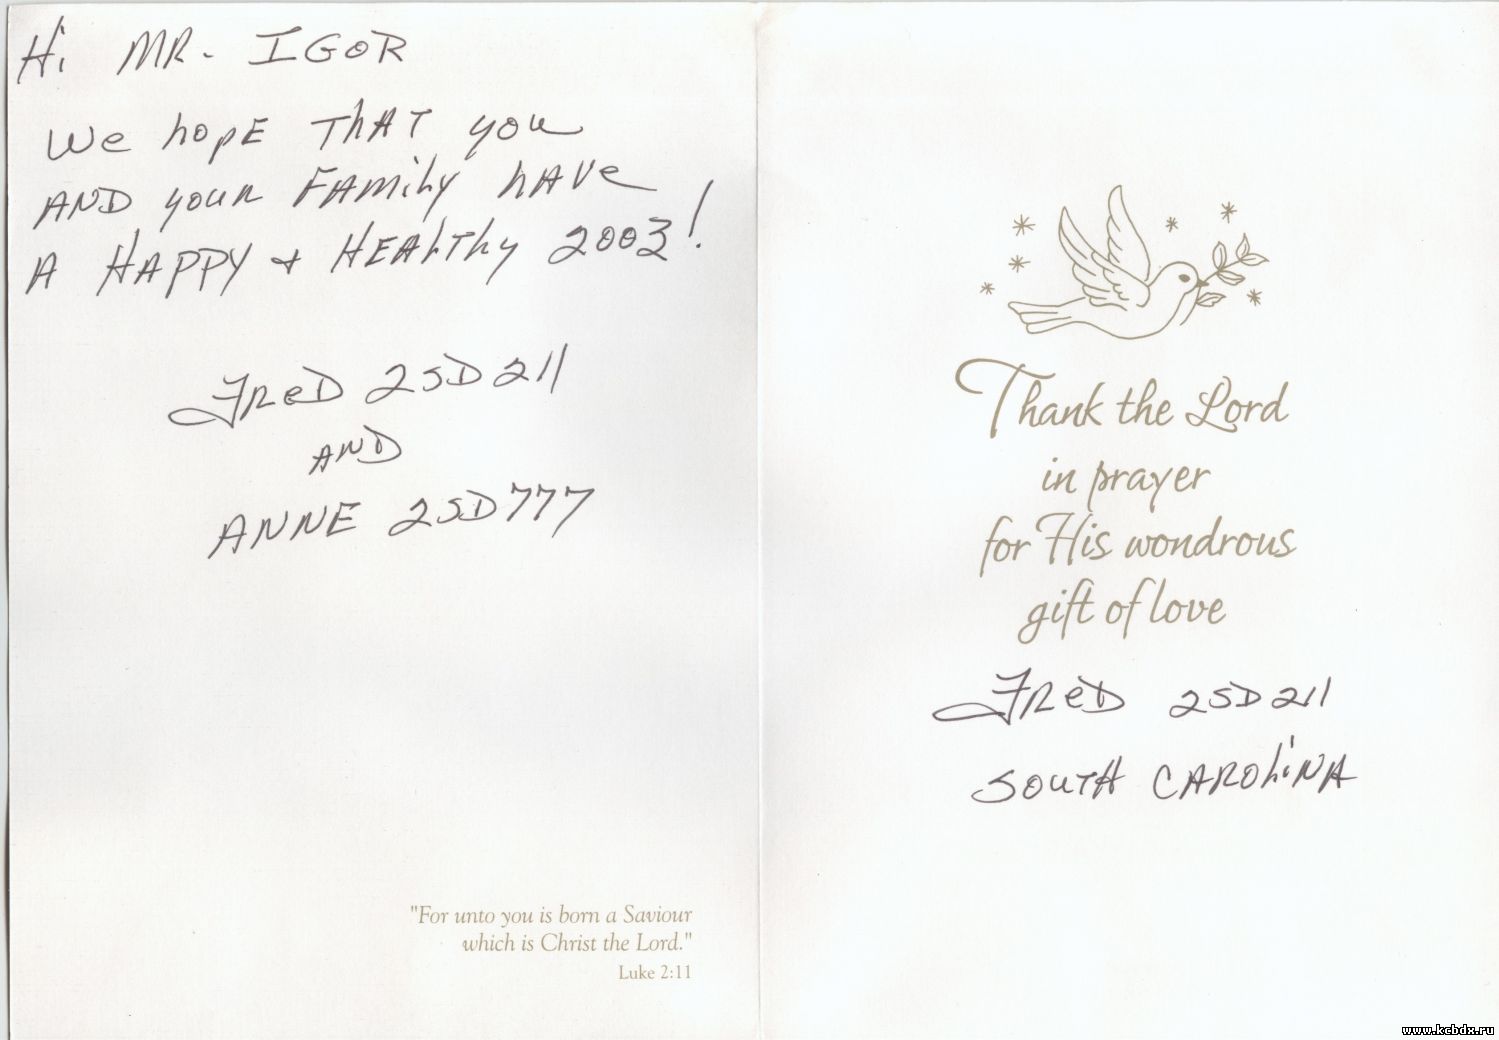 Hi MR. IGOR
We hopE ThAT you
AND youR FAmily hAVe
A HAPPY + HEAlThy 2003!
FReD 2SD211
AND
ANNE 2SD777
"For unto you is born a Saviour
which is Christ the Lord."
Luke 2:11
Thank the Lord
in prayer
for His wondrous
gift of love
FReD 2SD211
SOUTH CAROLiNA
www.kcbdx.ru